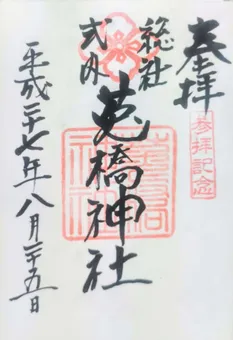 奉拝
参拝記念
総社
式外
芝橋神社
平成二十七年八月二十五日